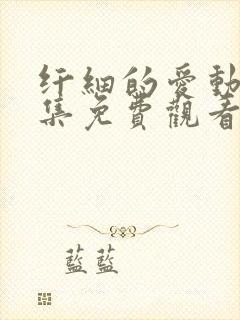 纤細的愛動
集免費觀看
藍藍